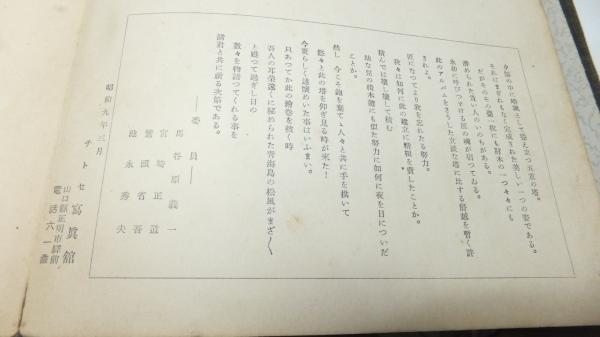 夕陽の中に地壞として聳え立つ五重の塔。
それはまぎれもなく完成された美しい一つの姿である。
だがそのその甍の一枚にも財木の一つ々々にも
潜められた造い人のいのちがある。
永劫に呼びつゞける匠の魂が宿つてゐる。
此のアルバムをさうした立派な塔に比する僣越を暫く許
されよ。
匠になつてより我を忘れたる努力。
我々は如何に此の建立に精根を費したことか。
積んでは壞し壞しては積む
幼な兒の積木健にも似た努力に如何に夜を日についだ
ことか。
然し 今こそ鉋を棄てゝ人々と共に手を携いて
悠々と此の塔を仰ぎ見る時が來た!
今更らしく述懷めいた事はいふまい。
只あつてか此の繪卷を披く時
吾人の耳朶遠くに秘められた靑海島の松風がまざ〱
と甦つて過ぎし日の
數々を物語つてくれる事を
諸君と共に祈る次第である。
――委員――
馬谷原義一
宮崎正道
鷲頭省吾
池永秀夫
昭和九年三月
チトセ寫眞館
山口縣正明市驛前
電話六一番